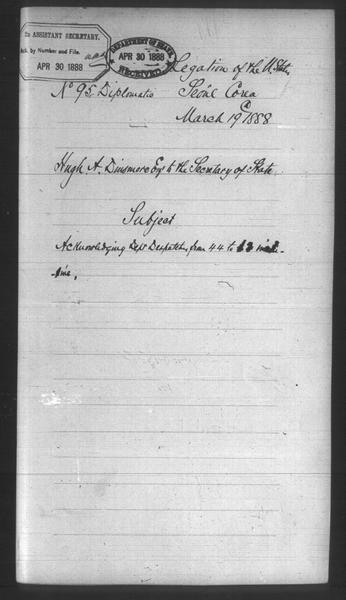 To ASSISTANT SECRETARY.
Ack. by Number and File.
APR 30 1888
DEPARTMENT OF STATE
APR 30 1888
RECEIVED
Legation of the U. States
No 95. Diplomatic Seoul Corea
March 19th 1888
Hugh A. Dinsmore Esq to the Secretary of State
Subject
Acknowledging Dept Despatches from 44 to incl-